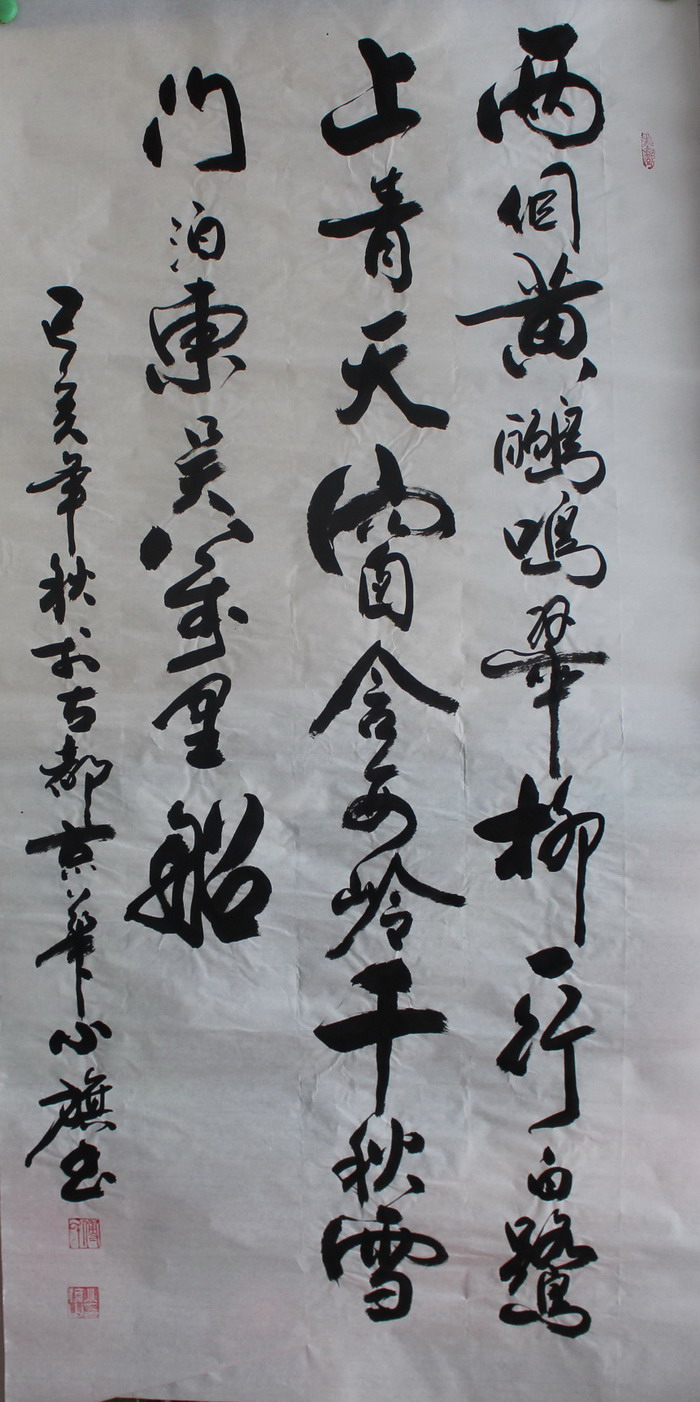 两個黄鸝鳴翠柳一行白鷺
上青天窗含西岭千秋雪
门泊東吴萬里船
己亥年秋於古都京華小旗书